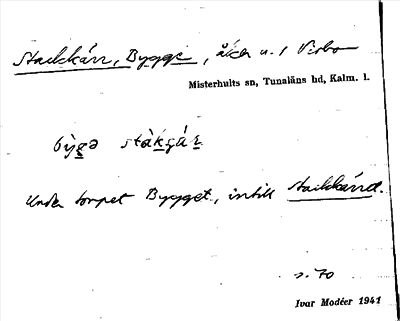 Stackkärr, Bygge, åker u. / Virbo
Misterhults sn, Tunaläns hd, Kalm. l.
bỳgə stàkçár
Under torpet Bygget, intill Stackkärret.
s. 70
Ivar Modéer 1941